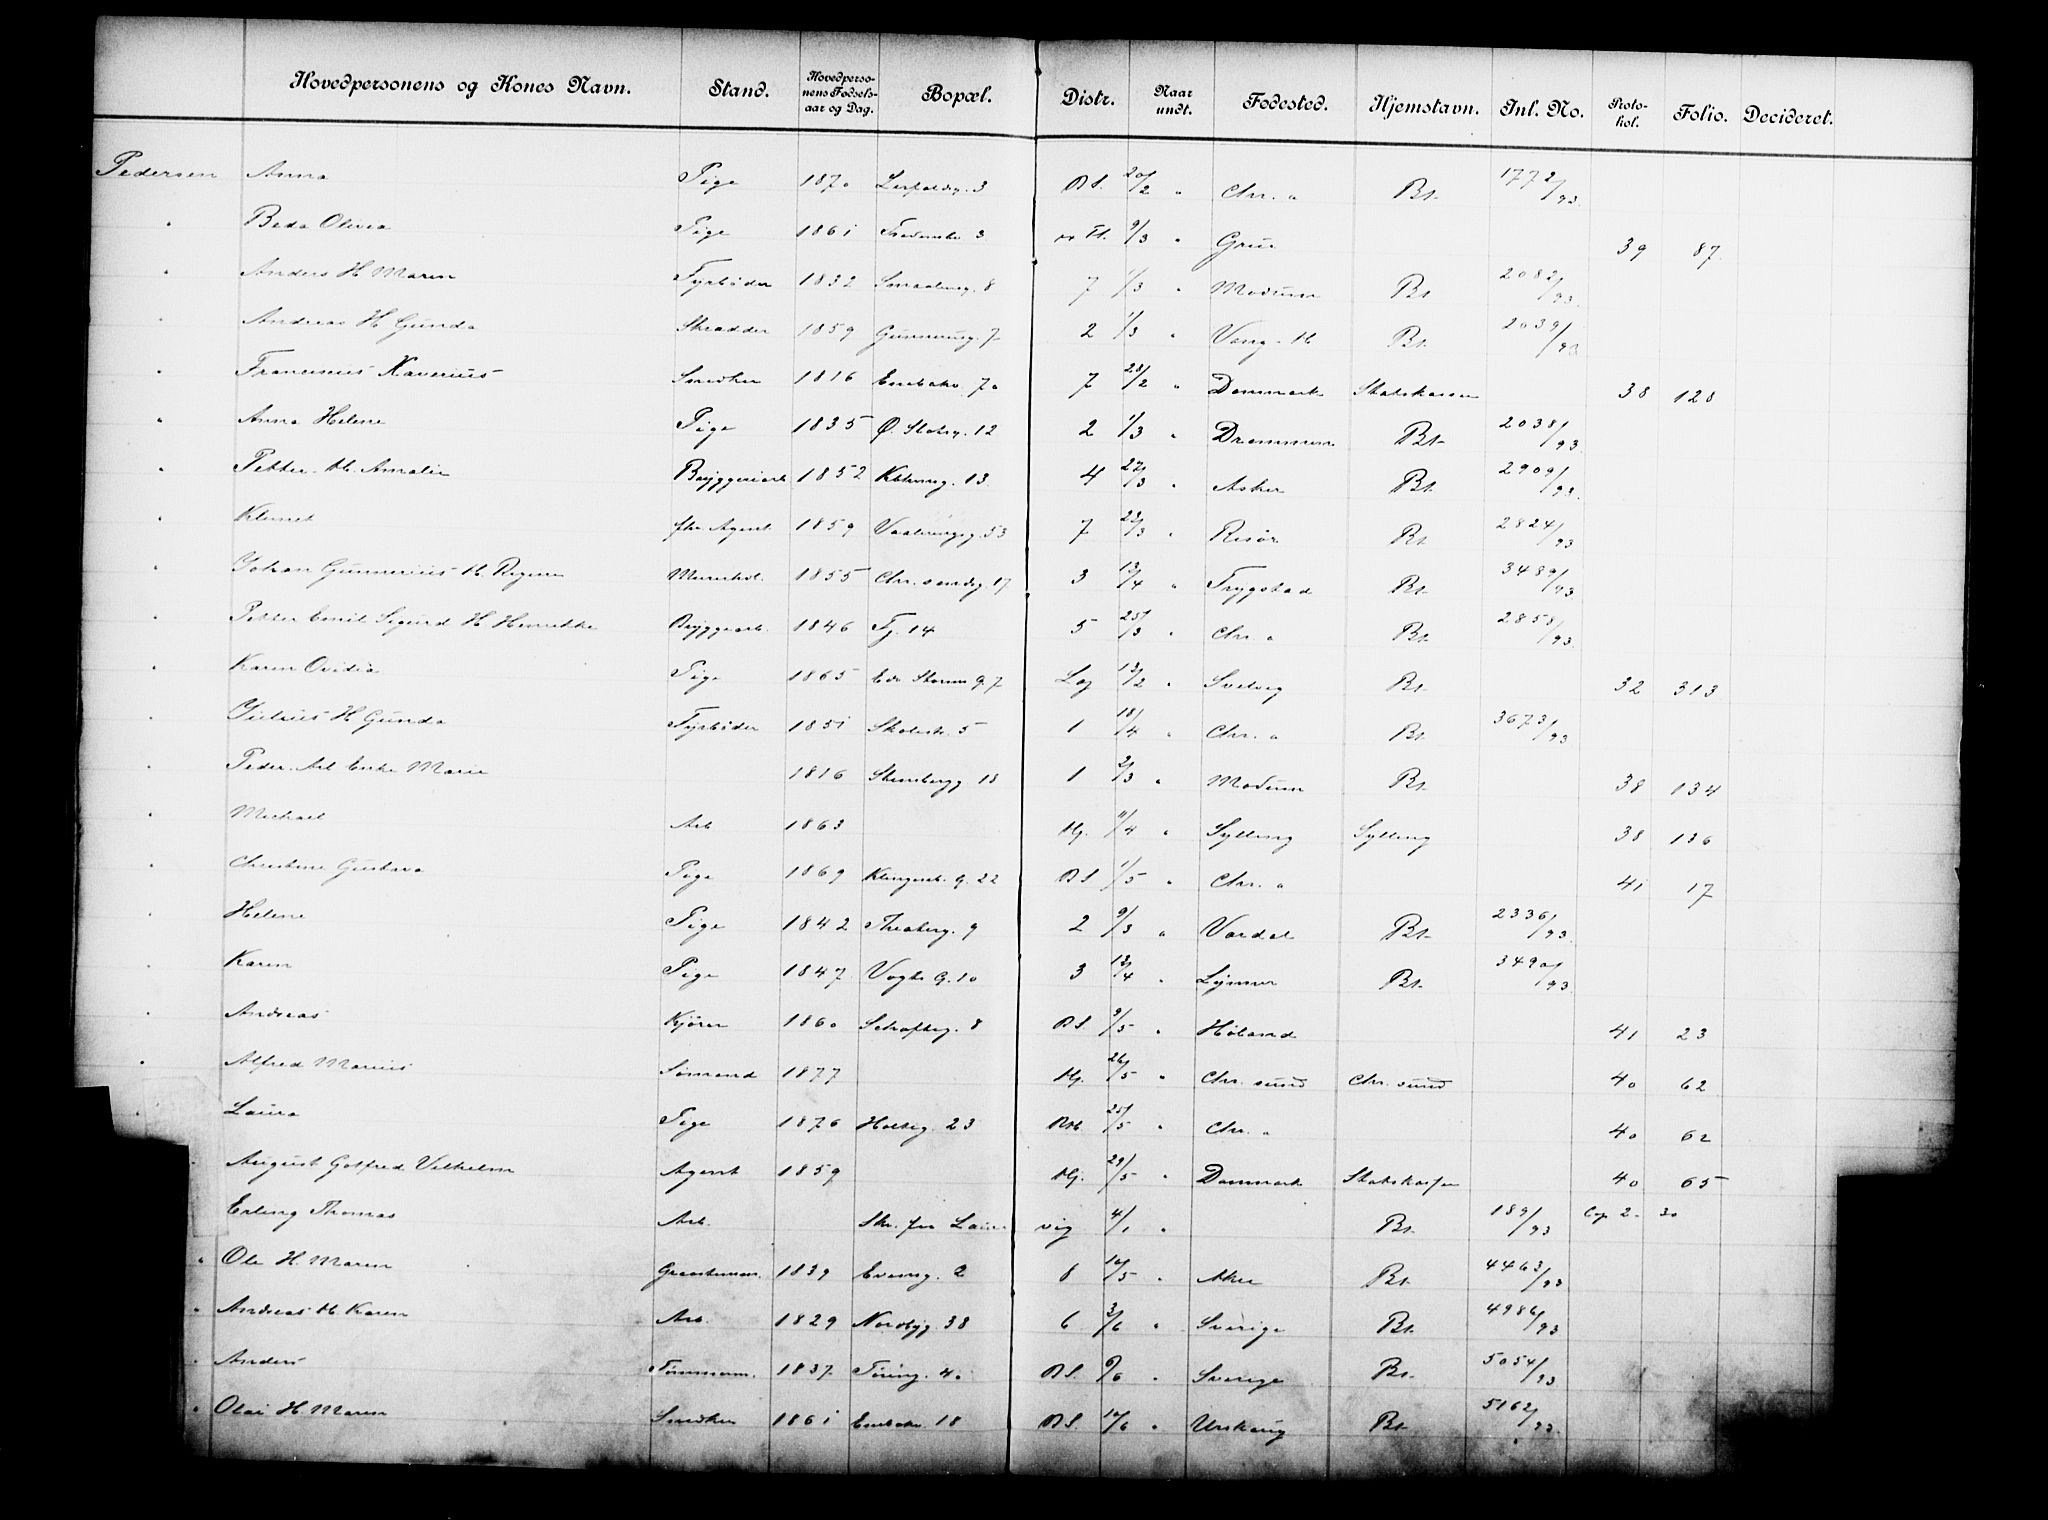 Hovedpersonens og Kones Navn. Stand. Hovedperso-nens Fødsels-aar og Dag. Bopæl. Distr. Naar undt. Fødested. Hjemstavn. Inl. No. Proto-kol. Folio. Decideret.
Pedersen Anna Pige 1870 3 B S. 20/2 " Chr. a Bt. 1772/93.
" Beda Olivia Pige 1861 Fredensb. 3 9/3 " Grue 39 87.
" Anders H Maren Fyrbøder 1832 Smaaleng. 8 7 1/3 " Modum Bt. 2082/93.
" Andreas H Gunda Skrædder 1859 Gunnerusg. 7 2 1/3 " Vang - H Bt. 2039/93.
" Franciscus Xaverius Snedker 1816 Enebakv. 7a 7 28/2 " Danmark Statskassen 38 128
" Anna Helene Pige 1835 Ø. Slotsg. 12 2 1/3 " Drammen Bt. 2038/93.
" Petter H. Amalie Bryggeriarb 1852 13 4 27/3 " Asker Bt. 2909/93.
" Klemet fhv. Agent 1859 Vaalerengg. 53 7 23/3 " Risør Bt. 2824/93
" Johan Gunnerius H. Murerhdl. 1855 Chr. sandsg. 17 3 13/4 " Trygstad Bt. 3489/93
" Petter Emil Sigurd H Henrikke Bryggearb. 1846 14 5 25/3 " Chr. a Bt. 2858/93.
" Karen Ovidia Pige 1865 Edv Storms G. 7 Log 13/2 " Svelvig Bt. 32 313
" Julius H Gunda Fyrbøder 1851 Skolest. 5 1 18/4 " Chr. a Bt. 3673/93
" Peder. Arb Enke Marie 1816 Stensbergg 18 1 2/3 " Modum Bt. 38 134
" Michael Arb 1863 Hj. 11/4 " Sylling Sylling 38 136
" Christine Gustava Pige 1869 Klingenb. G. 22 B S 1/5 " Chr. a 41 17
" Helene Pige 1842 Theaterg. 9 2 9/3 " Vardal Bt. 2336/93.
" Karen Pige 1847 Vogts G. 10 3 13/4 " Lymer Bt. 3490/93.
" Andreas Kjører 1860 Schafteg. 8 B S. 9/5 " Høland 41 23
" Alfred Marius Sømand 1877 Hj. 26/5 " Chr. sund Chr. sund 40 62
" Laura Pige 1876 Holteg. 23 25/5 " Chr. a 40 62
" August Gotfred Vilhelm Agent 1859 Hj. 29/5 " Danmark Statskassen 40 65
Erling Thomas Arb. Skr. fra Laurvig 4/1 " Bt. 189/93 Cop 2. 30
" Ole H. Maren 1839 2 8 16/5 " Aker Bt. 4463/93
" Andreas H. Karen Arb. 1829 Nordbyg. 38 6 3/6 " Sverige Bt. 4986/93
" Anders Tømmerm. 1837 Tøieng. 40 B S. 6/6 " Sverige Bt. 5054/93
" Olai H. Maren Snedker 1861 Enebakv. 18 B S. 10/6 " Urskoug Bt. 5162/93.